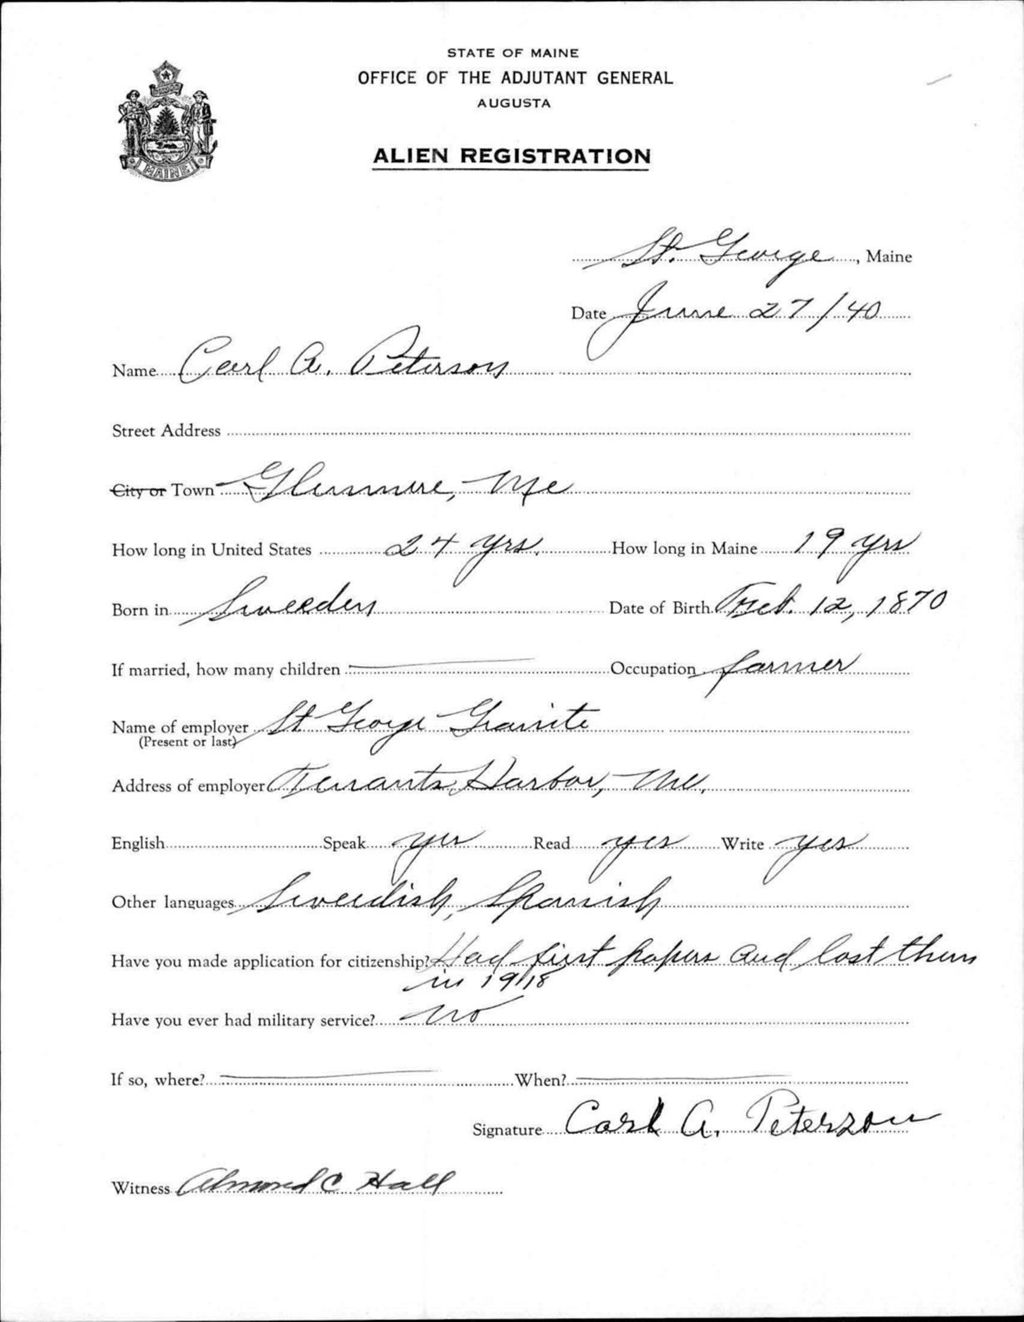 STATE OF MAINE
OFFICE OF THE ADJUTANT GENERAL
AUGUSTA
ALIEN REGISTRATION
MAINE
St. George, Maine
Date June 27/40
Name Carl A. Peterson
Street Address
City or Town Glenmere, Me
How long in United States 24 yrs. How long in Maine 19 yrs
Born in Sweeden Date of Birth Feb. 12, 1870
If married, how many children Occupation farmer
Name of employer St George Granite
(Present or last)
Address of employer Tenants Harbor, Me.
English Speak yes Read yes Write yes
Other languages Sweedish, Spanish
Have you made application for citizenship? Had first papers and lost them
in 1918
Have you ever had military service? no
If so, where? When?
Signature Carl A. Peterson
Witness Almond C Hall